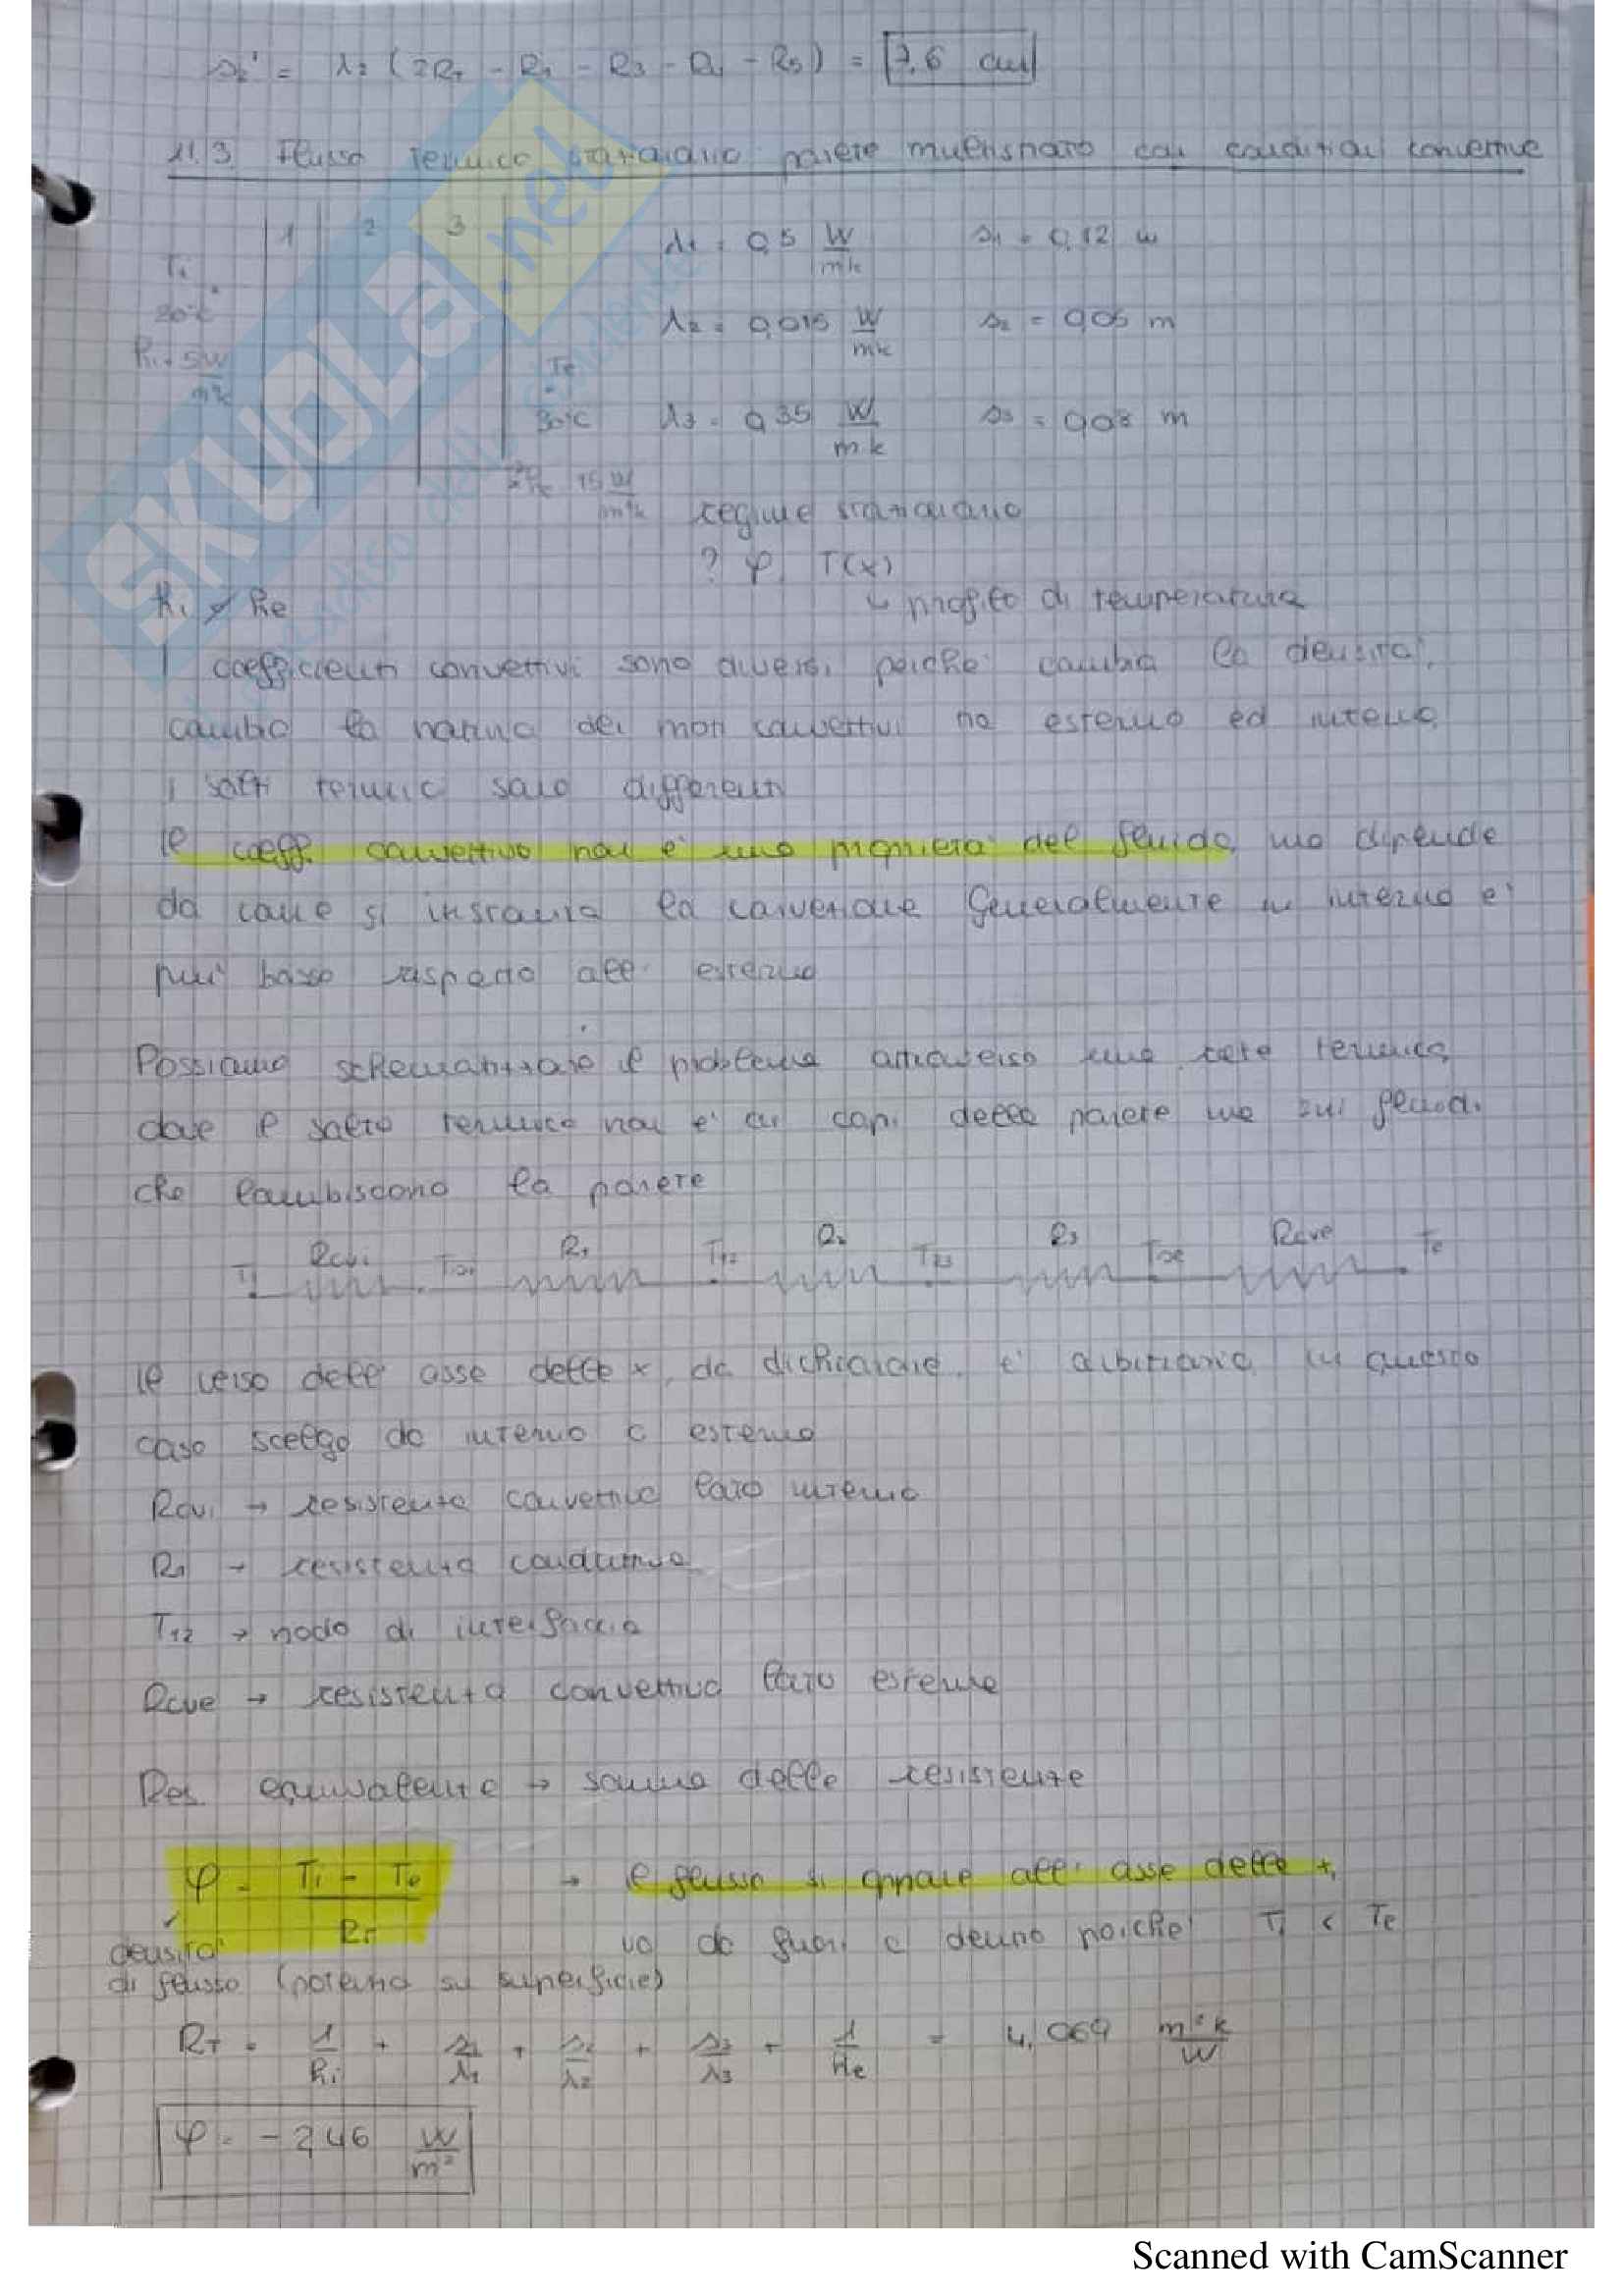 s₂' = λ₂ (2R_T - R₁ - R₃ - R₄ - R₅) = 7,6 cm
11.3 Flusso termico stazionario parete multistrato con condizioni convettive
1 2 3
Ti
20°C
hi = 5 W/m²K
Te
=
30°C
he = 15 W/m²K
λ1 = 0,5 W/mK s1 = 0,12 m
λ2 = 0,015 W/mK s2 = 0,05 m
λ3 = 0,35 W/mK s3 = 0,08 m
regime stazionario
? φ, T(x)
↳ profilo di temperatura
hi ≠ he
I coefficienti convettivi sono diversi perché cambia la densità,
cambia la natura dei moti convettivi tra esterno ed interno,
i salti termici sono differenti
Il coeff. convettivo non è una proprietà del fluido, ma dipende
da come si instaura la convezione Generalmente in interno è
più basso rispetto all' esterno
Possiamo schematizzare il problema attraverso una rete termica,
dove il salto termico non è ai capi della parete ma sui fluidi
che lambiscono la parete
Ti Rcvi Tsi R1 T12 R2 T23 R3 Tse Rcve Te
Il verso dell' asse delle x, da dichiarare, è arbitrario, in questo
caso scelgo da interno a esterno
Rcvi → resistenza convettiva lato interno
R1 → resistenza conduttiva
T12 → nodo di interfaccia
Rcve → resistenza convettiva lato esterno
Res. equivalente → somma delle resistenze
φ = (Ti - Te) / R_T → il flusso si oppone all' asse delle x,
va da fuori a dentro poiché Ti < Te
densità
di flusso (potenza su superficie)
R_T = 1/hi + s1/λ1 + s2/λ2 + s3/λ3 + 1/he = 4,069 m²K/W
φ = -2,46 W/m²
SKUOLA.net
Scanned with CamScanner